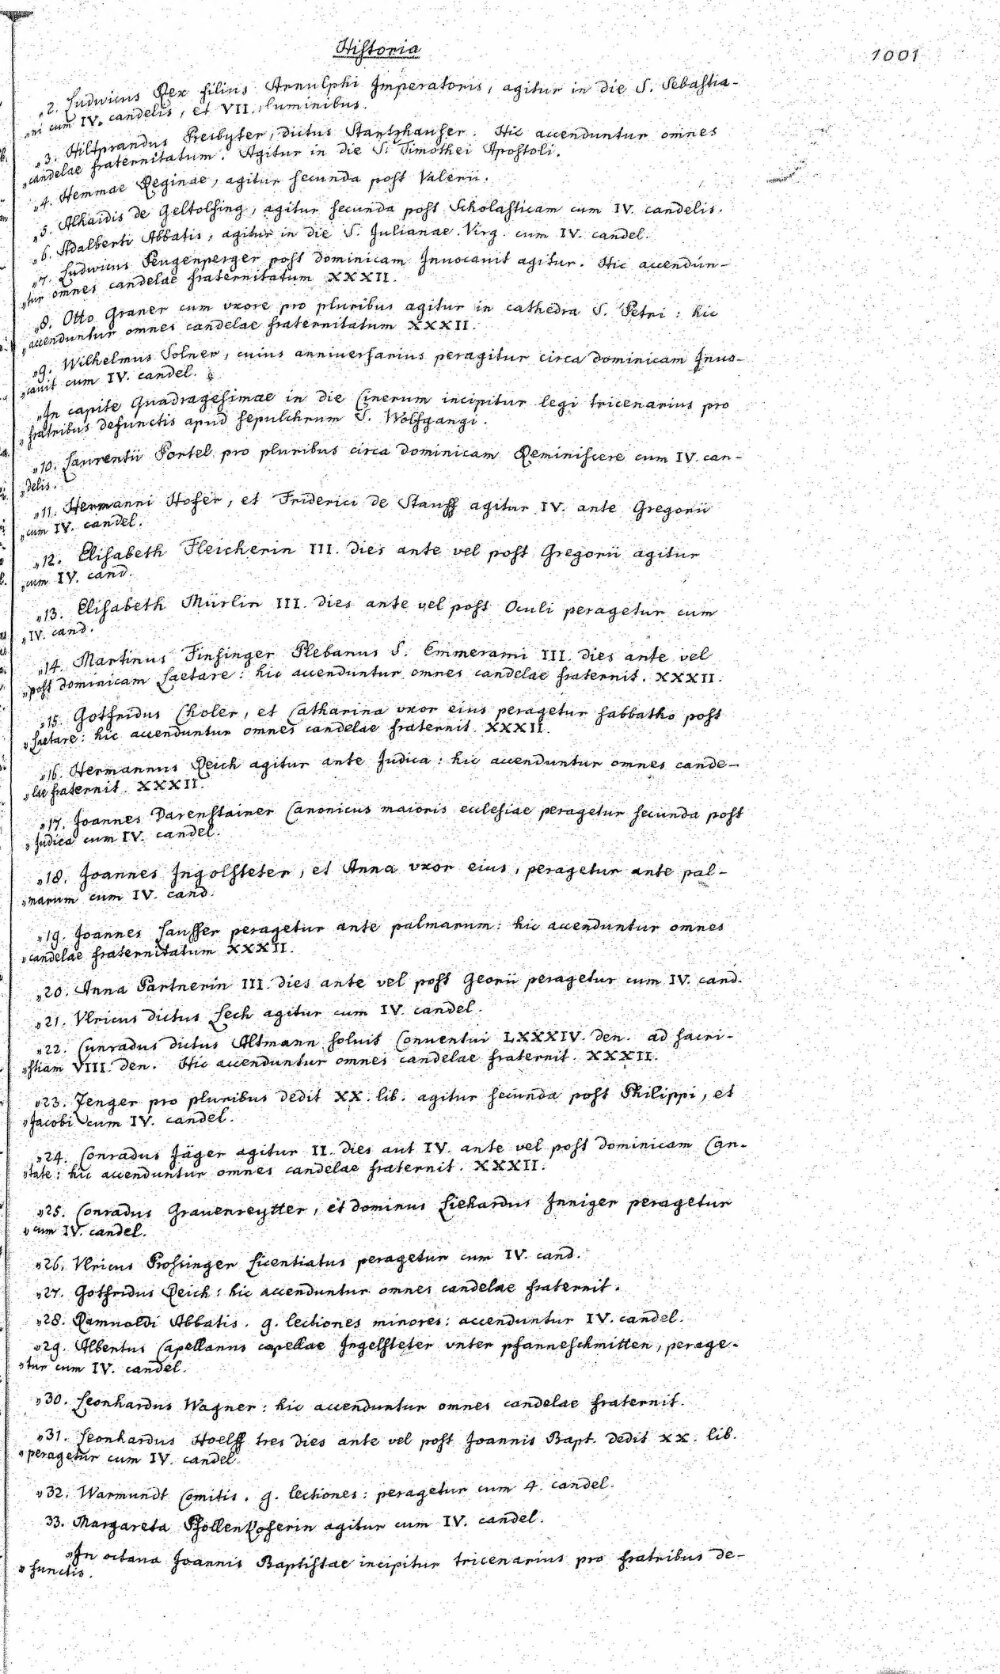 Historia
1001
„2. Ludwicus Rex filius Arnulphi Imperatoris, agitur in die S. Sebastia-
„ni cum IV. candelis, et VII. luminibus.
„3. Hiltprandus Presbyter, dictus Stantzhauser. Hic accenduntur omnes
„candelae fraternitatum. Agitur in die S. Timothei Apostoli.
„4. Hemmae Reginae, agitur secunda post Valerii.
„5. Alhaidis de Geltolfing, agitur secunda post Scholasticam cum IV. candelis.
„6. Adalberti Abbatis, agitur in die S. Julianae Virg. cum IV. candel.
„7. Ludwicus Peugenperger post dominicam Inuocauit agitur. Hic accendun-
„tur omnes candelae fraternitatum XXXII.
„8. Otto Graner cum vxore pro pluribus agitur in cathedra S. Petri: hic
„accenduntur omnes candelae fraternitatum XXXII.
„9. Wilhelmus Solner, cuius anniuersarius peragitur circa dominicam Inuo-
„cauit cum IV. candel.
„In capite Quadragesimae in die Cinerum incipitur legi tricenarius pro
„fratribus defunctis apud sepulchrum S. Wolfgangi.
„10. Laurentii Portel pro pluribus circa dominicam Reminiscere cum IV. can-
„delis.
„11. Hermanni Hofer, et Friderici de Stauff agitur IV. ante Gregorii
„cum IV. candel.
„12. Elisabeth Fleicherin III. dies ante vel post Gregorii agitur
„cum IV. cand.
„13. Elisabeth Mürlin III. dies ante vel post Oculi peragetur cum
„IV. cand.
„14. Martinus Finsinger Plebanus S. Emmerami III. dies ante vel
„post dominicam Laetare: hic accenduntur omnes candelae fraternit. XXXII.
„15. Gotfridus Choler, et Catharina vxor eius peragetur sabbatho post
„Laetare: hic accenduntur omnes candelae fraternit. XXXII.
„16. Hermannus Reich agitur ante Judica: hic accenduntur omnes cande-
„lae fraternit. XXXII.
„17. Joannes Parenstainer Canonicus maioris ecclesiae peragetur secunda post
„Judica cum IV. candel.
„18. Joannes Ingolsteter, et Anna vxor eius, peragetur ante pal-
„marum cum IV. cand.
„19. Joannes Lausser peragetur ante palmarum: hic accenduntur omnes
„candelae fraternitatum XXXII.
„20. Anna Partnerin III. dies ante vel post Georii peragetur cum IV. cand.
„21. Vlricus dictus Lech agitur cum IV. candel.
„22. Cunradus dictus Altmann soluit Conuentui LXXXIV. den. ad sacri-
„stiam VIII. den. Hic accenduntur omnes candelae fraternit. XXXII.
„23. Zenger pro pluribus dedit XX. lib. agitur secunda post Philippi, et
„Jacobi cum IV. candel.
„24. Conradus Jäger agitur II. dies aut IV. ante vel post dominicam Can-
„tate: hic accenduntur omnes candelae fraternit. XXXII.
„25. Conradus Grauenreytter, et dominus Liehardus Inniger peragetur
„cum IV. candel.
„26. Vlricus Prossinger Licentiatus peragetur cum IV. cand.
„27. Gotfridus Reich: hic accenduntur omnes candelae fraternit.
„28. Ramuoldi Abbatis. 9. lectiones minores: accenduntur IV. candel.
„29. Albertus Capellanus capellae Ingelsteter vnter pfanneschmitten, perage-
„tur cum IV. candel.
„30. Leonhardus Wagner: hic accenduntur omnes candelae fraternit.
„31. Leonhardus Hoelff tres dies ante vel post Joannis Bapt. dedit XX. lib.
„peragetur cum IV. candel.
„32. Warmundt Comitis. 9. lectiones: peragetur cum 4. candel.
33. Margareta Pfollenkoferin agitur cum IV. candel.
„In octaua Joannis Baptistae incipitur tricenarius pro fratribus de-
„functis.